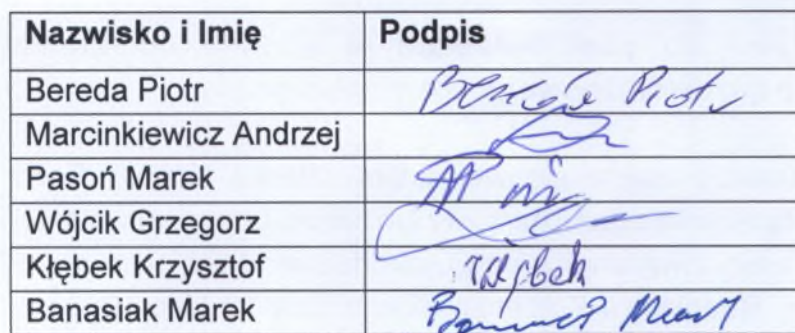 Nazwisko i Imię Podpis
Bereda Piotr Bereda Piotr
Marcinkiewicz Andrzej
Pasoń Marek
Wójcik Grzegorz
Kłębek Krzysztof Kłębek
Banasiak Marek